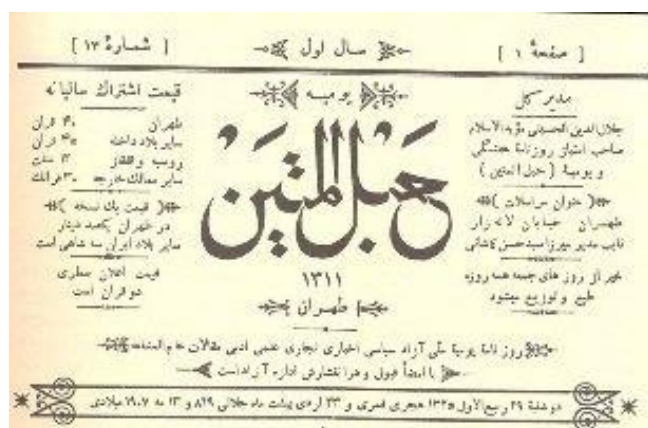 [ صفحهٔ ۱ ]
سال اول
[ شمارهٔ ۱۳ ]
مدیر کل
جلال الدین الحسینی مؤید الاسلام
صاحب امتیاز روزنامهٔ هفتگی
و یومیهٔ ( حبل المتین )
( عنوان مراسلات )
طهران خیابان لاله زار
نایب مدیر میرزا سید حسن کاشانی
غیر از روز های جمعه همه روزه
طبع و توزیع میشود
یومیه
حبل المتین
۱۳۱۱
طهران
قیمت اشتراک سالیانه
طهران ۴۰ قران
سایر بلاد داخله ۴۵ قران
روسیه و قفقاز ۱۲ منات
سایر ممالک خارجه ۳۰ فرانک
( قیمت یک نسخه )
در طهران یکصد دینار
سایر بلاد ایران سه شاهی است
قیمت اعلان سطری
دو قران است
روز نامهٔ یومیهٔ ملّی آزاد سیاسی اخباری تجاری علمی ادبی مقالات عام المنفعه
با امضأ قبول و در انتشارش اداره آزاد است
دوشنبهٔ ۲۹ ربیع الاول ۱۳۲۵ هجری قمری و ۲۳ اردی بهشت ماه جلالی ۸۲۹ و ۱۳ مه ۱۹۰۷ میلادی